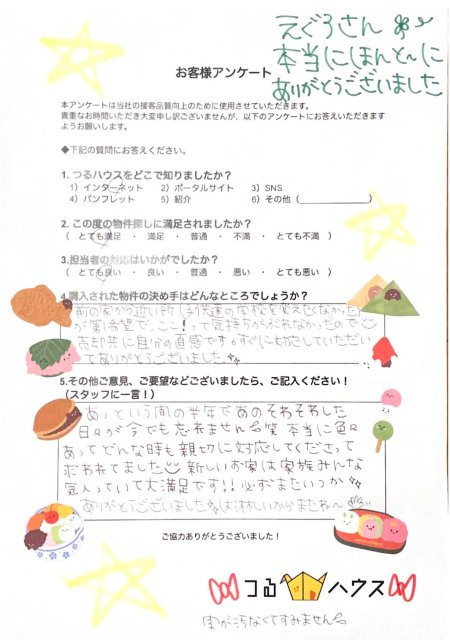 えぐろさん
本当にほんと〜に
ありがとうございました
お客様アンケート
本アンケートは当社の接客品質向上のために使用させていただきます。
貴重なお時間いただき大変申し訳ございませんが、以下のアンケートにお答えいただきます
ようお願いします。
◆下記の質問にお答えください。
1. つるハウスをどこで知りましたか？
1）インターネット 2）ポータルサイト 3）SNS
4）パンフレット 5）紹介 6）その他（　　　　　）
2. この度の物件探しに満足されましたか？
（ とても満足 ・ 満足 ・ 普通 ・ 不満 ・ とても不満 ）
3.担当者の対応はいかがでしたか？
（ とても良い ・ 良い ・ 普通 ・ 悪い ・ とても悪い ）
4.購入された物件の決め手はどんなところでしょうか？
前の家から近い所 子供達の学校を変えたくなかった
が第1希望で、ここ！って気持ちがぶれなかったので
売却共に自分の直感です。すぐに対応していただい
てありがとうございました
5.その他ご意見、ご要望などございましたら、ご記入ください！
（スタッフに一言！）
あっという間の半年であのそわそわした
日々が今でも忘れません 笑 本当に色々
あってどんな時も親切に対応してくださって
救われてました 新しいお家は家族みんな
気入っていて大満足です!! 必ずまたいつか
ありがとうございました は淋しいからまたね〜
ご協力ありがとうございました！
つるハウス
字が汚なくてすみません